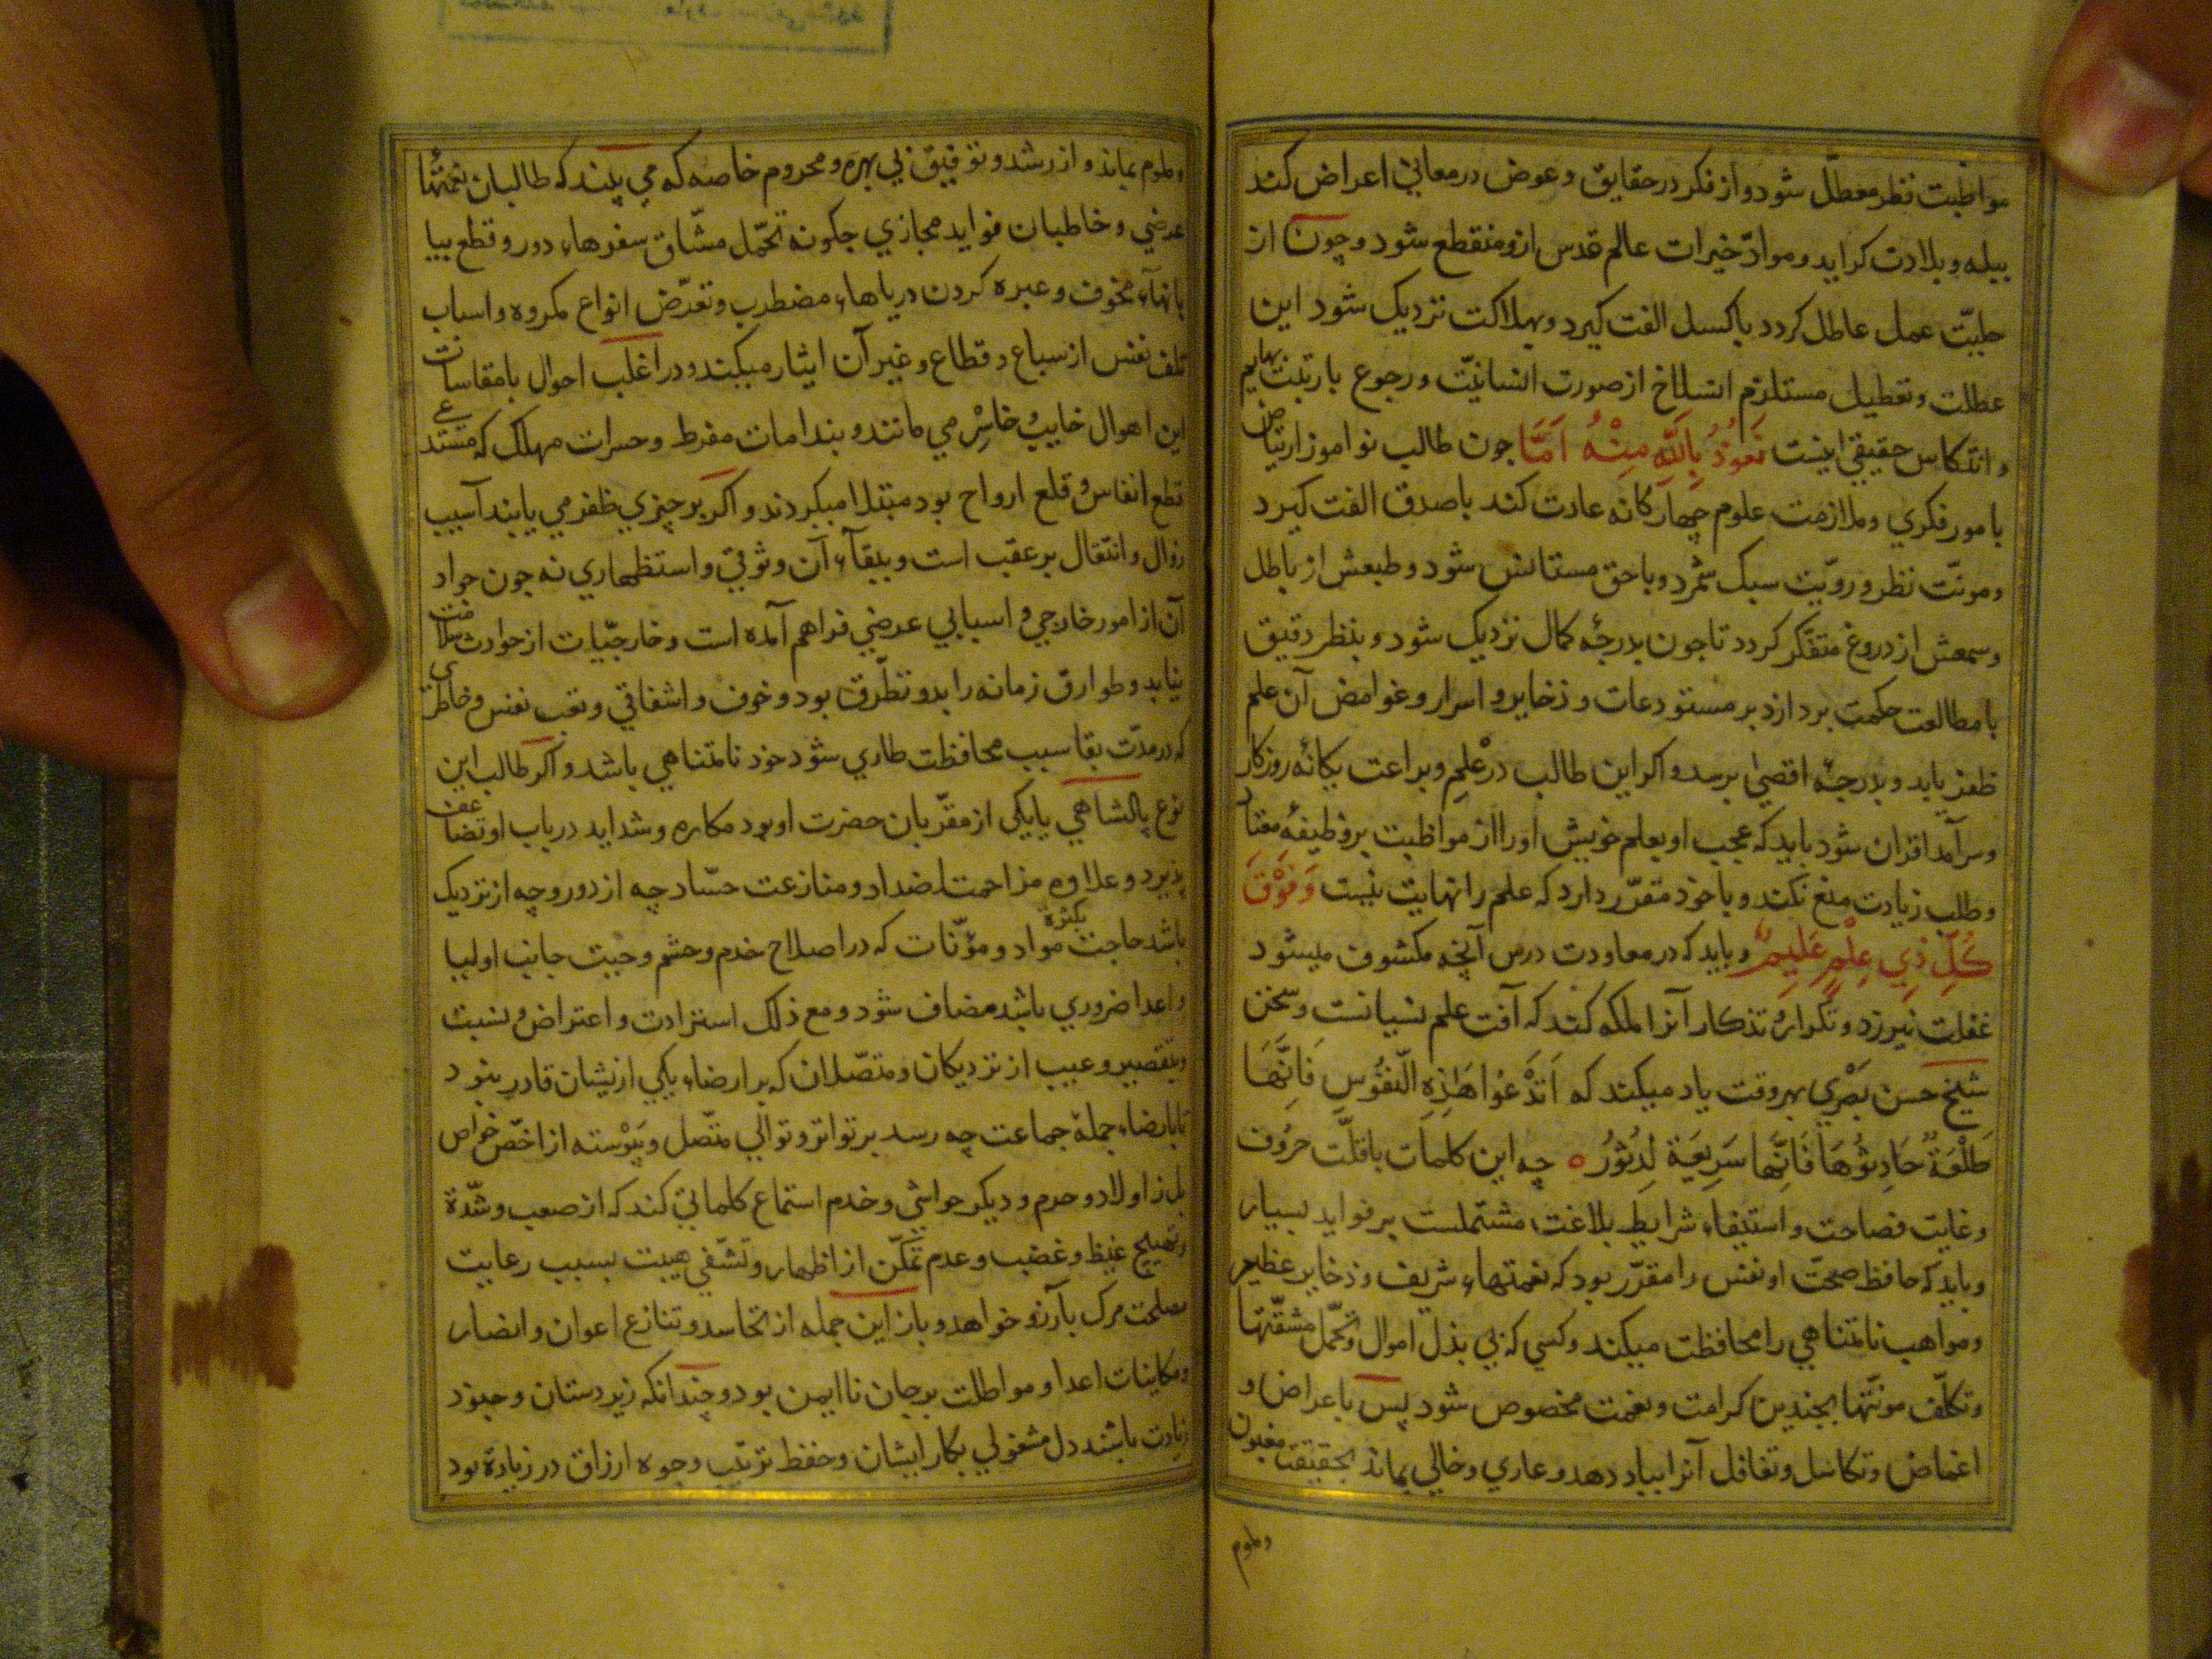 مواظبت نظر معطّل شود و از فکر در حقایق و عوض در معانی اعراض کند
ببله و بلادت کراید و موادّ خیرات عالم قدس ازو منقطع شود و چون از
حلیت عمل عاطل کردد با کسل الفت کیرد و بهلاکت نزدیک شود این
عطلت و تعطیل مستلزم انسلاخ از صورت انسانیّت و رجوع با رتبت بهایم
و انتکاس حقیقی اینست نَعُوذُ بِاللَّهِ مِنْهُ اَمَّا جون طالب نو اموز ارتیاض
بامور فکری و ملازمت علوم چهارکانه عادت کند با صدق الفت کیرد
و مونت نظر و رویّت سبک شمرد و با حق مستانس شود و طبعش از باطل
و سمعش از دروغ متنفّر کردد تا جون بدرجهٔ کمال نزدیک شود و بنظر دقیق
با مطالعت حکمت بردازد بر مستودعات و ذخایر و اسرار و غوامض آن علم
ظفر یابد و بدرجهٔ اقصی برسد و اکر این طالب در علم و براعت یکانهٔ روزکار
و سرآمد اقران شود باید که عجب او بعلم خویش او را از مواظبت بر وظیفهٔ معتاد
و طلب زیادت منع نکند و با خود مقرّر دارد که علم را نهایت نیست وَفَوْقَ
كُلِّ ذِي عِلْمٍ عَلِيمٌ و باید که در معاودت درس آنچه مکشوف میشود
غفلت نبرزد و تکرار و تذکار آنرا ملکه کند که آفت علم نسیانست و سخن
شیخ حسن بصری بهر وقت یاد میکند که اَتْدَعُوا هَذِهِ النّفُوسِ فَاِنَّهَا
طَلْعَةٌ حَادِثُوهَا فَاِنَّهَا سَرِیعَة لِدُثُورُ ه چه این کلمات با قلّت حروف
و غایت فصاحت و استیفاء شرایط بلاغت مشتملست بر فواید بسیار
و باید که حافظ صحّت او نفس را مقرّر بود که نعمتهاء شریف و ذخایر عظیم
و مواهب نامتناهی را محافظت میکند و کسی که بی بذل اموال و تحمّل مشقّتها
و تکلّف مونتّها بجندین کرامت و نعمت مخصوص شود پس باعراض و
اغماض و تکاسل و تغافل آنرا بباد دهد و عاری و خالی بماند بحقیقت مغبون
و ملوم
و ملوم بماند و از رشد و توفیق بی بهره و محروم خاصه که می بیند که طالبان نعمتهاء
عرضی و خاطبان فواید مجازی جکونه تحمّل مشّاق سفرهاء دور و قطع بیا
بانهاء مخوف و عبره کردن دریاهاء مضطرب و تعرّض انواع مکروه و اسباب
تلف نفس از سباع و قطاع و غیر آن ایثار میکنند و در اغلب احوال با مقاسات
این اهوال خایب و خاسر می مانند و بندامات مفرط و حسرات مهلک که مستدعی
قطع انفاس و قلع ارواح بود مبتلا میکردند و اکر بر چیزی ظفر می یابند آسیب
زوال و انتقال بر عقب است و ببقآء آن وثوقی و استظهاری نه جون جواد
آن از امور خارجی و اسبابی عرضی فراهم آمده است و خارجیّات از حوادث سلامت
نیابد و طوارق زمانه را بدو تطرّق بود و خوف و اشفاقی و تعب نفس و خاطری
که در مدّت بقا سبب محافظت طاری شود خود نامتناهی باشد و اکر طالب این
نوع پادشاهی یا یکی از مقرّبان حضرت او بود مکاره و شداید در باب او تضاعف
پذیرد و علاوه مزاحمت اضداد و منازعت حسّاد چه از دور و چه از نزدیک
باشد حاجت بکثرة مواد و مؤنات که در اصلاح خدم و حشم و حبیت جانب اولیا
و اعدا ضروری باشد مضاف شود و مع ذلک استزادت و اعتراض و نسبت
و بتقصیر و عیب از نزدیکان و متصّلان که بر ارضاء یکی ازیشان قادر نبود
تا بارضاء جملهٔ جماعت چه رسد بر تواتر و توالی متّصل و پیوسته از اخصّ خواص
بل از اولاد و حرم و دیکر حواشی و خدم استماع کلماتی کند که از صعب و شدّة
و تهییج غیظ و غضب و عدم تمکّن از اظهار و تشفّی هیبت بسبب رعایت
مصلحت مرک بآرزو خواهد و باز این جمله از تحاسد و تنازع اعوان و انصار
و مکاینات اعدا و مواطلت بر جان نا ایمن بود و چندانکه زیردستان و جنود
زیادت باشند دل مشغولی بکار ایشان و حفظ ترتیب وجوه ارزاق در زیادة بود